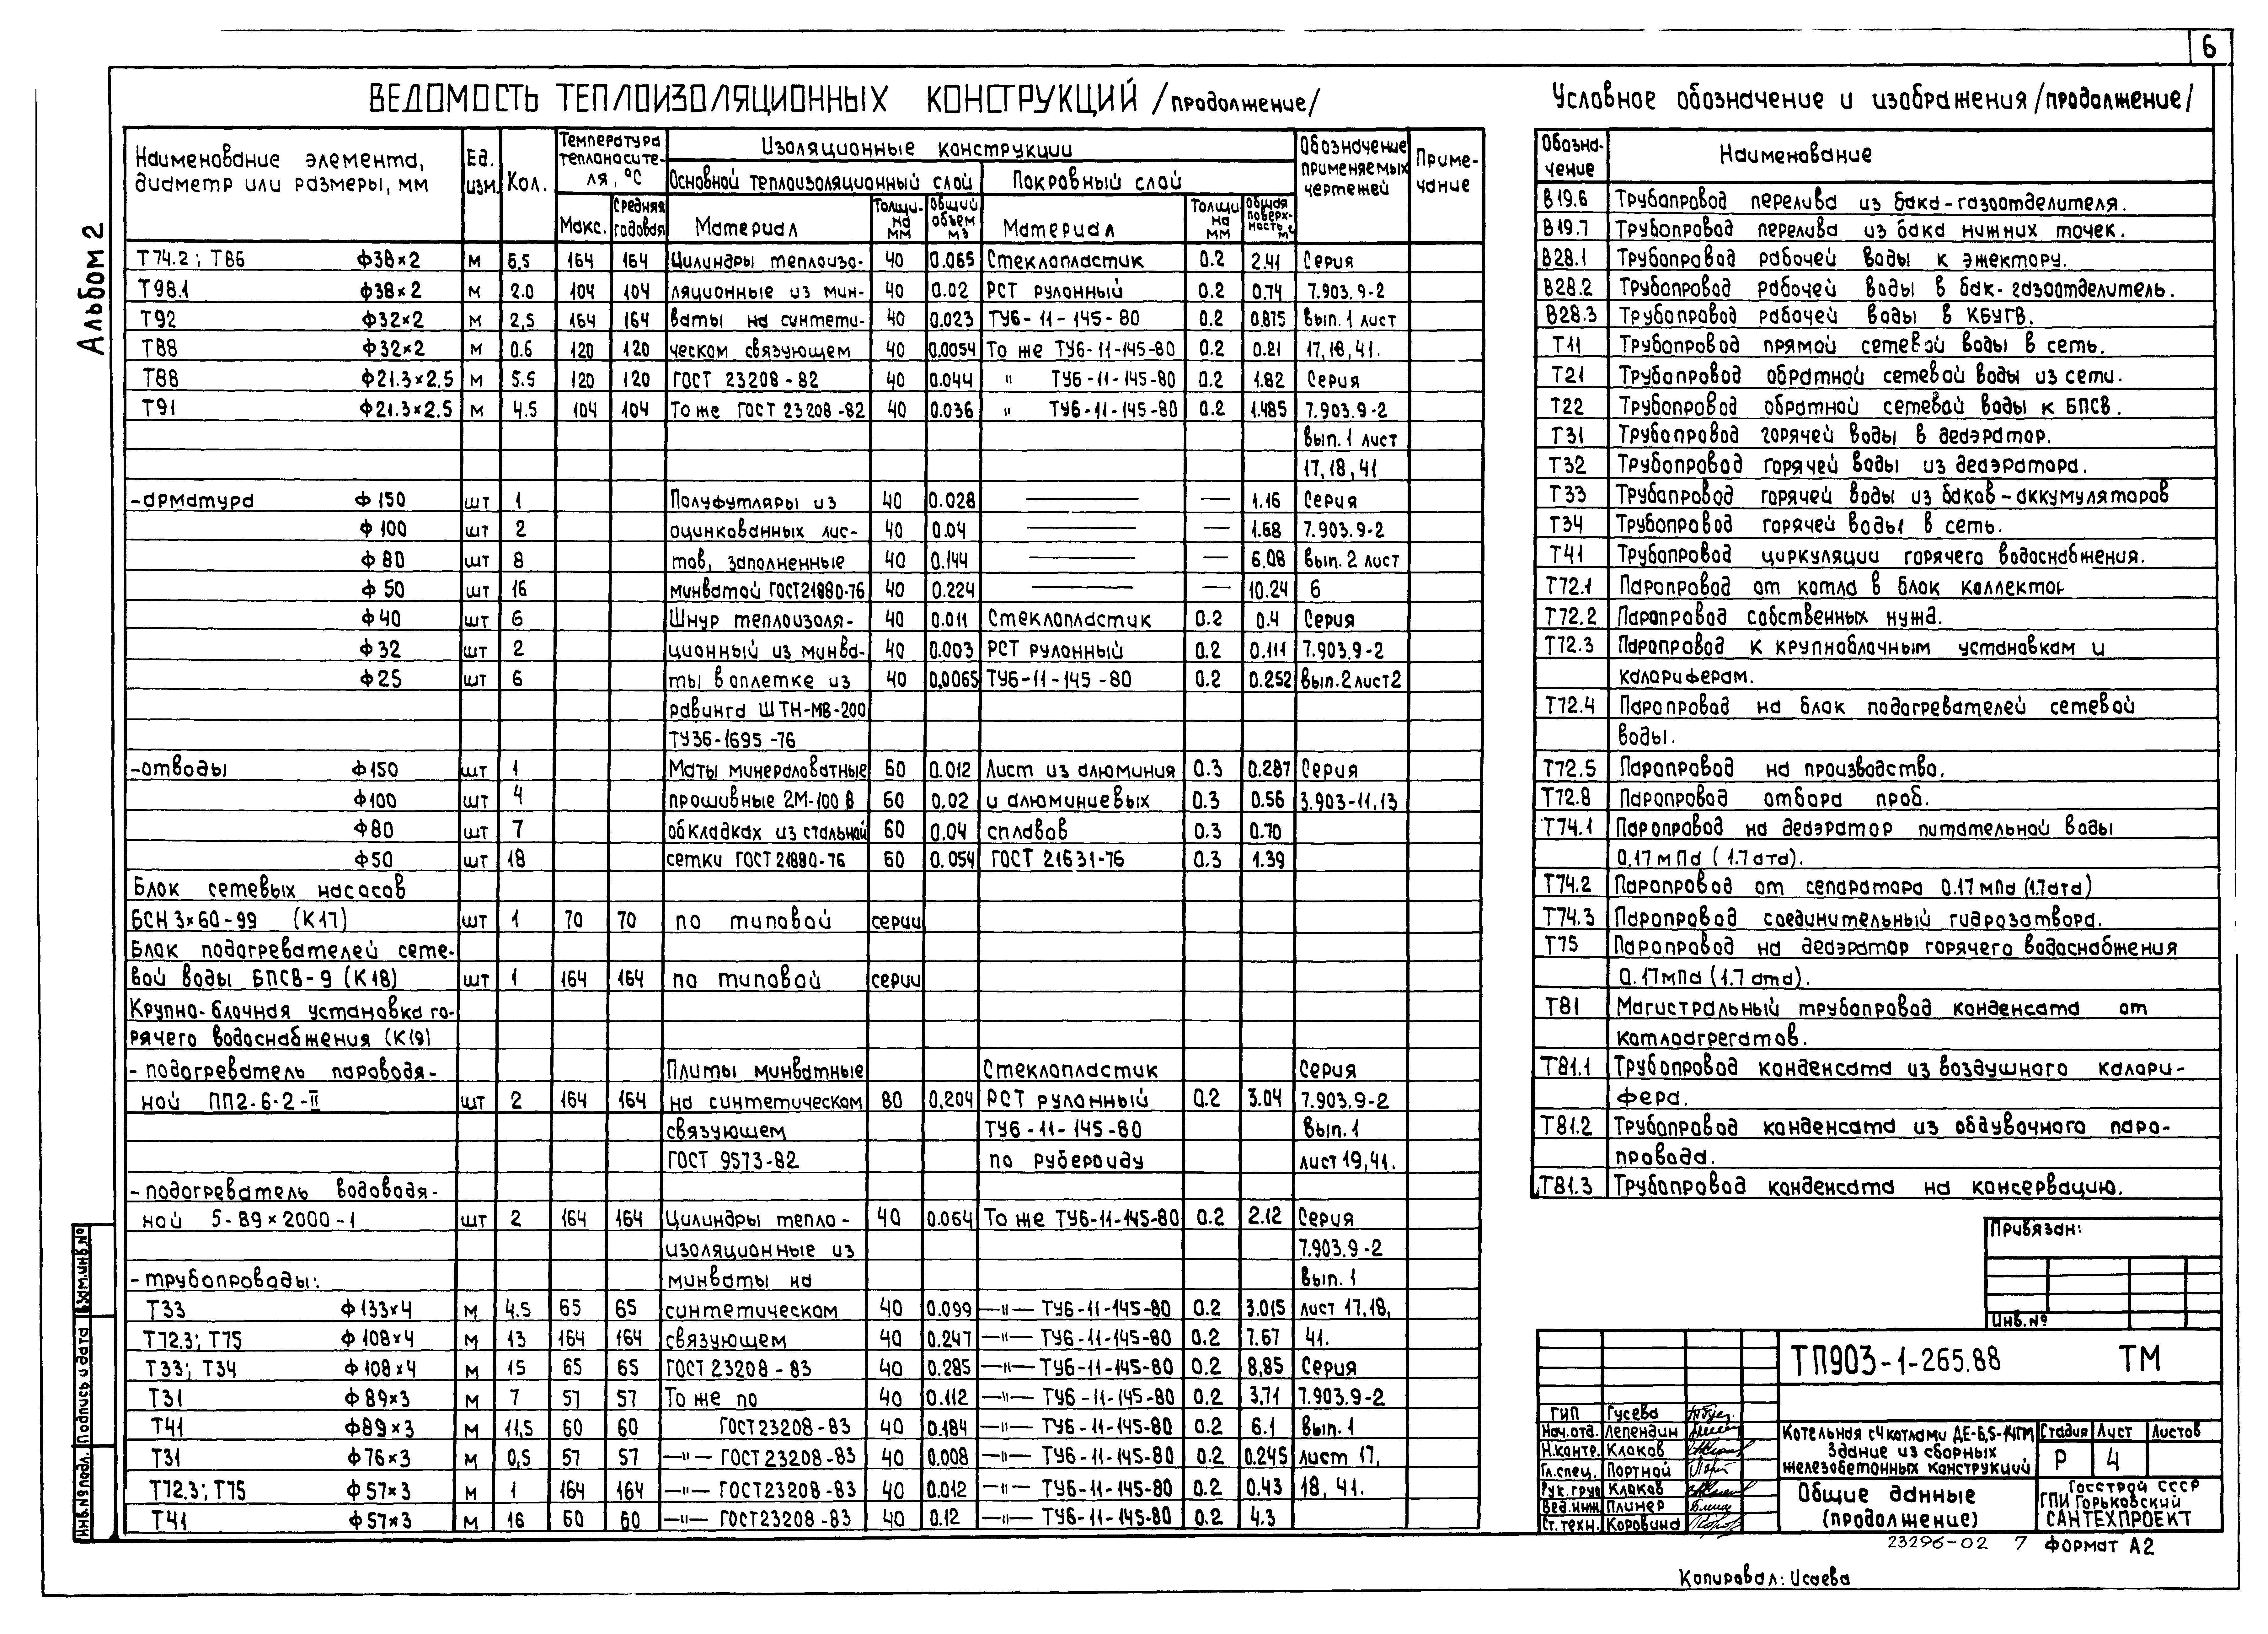 6
Альбом 2
ВЕДОМОСТЬ ТЕПЛОИЗОЛЯЦИОННЫХ КОНСТРУКЦИЙ /продолжение/
Наименование элемента, диаметр или размеры, мм
Ед. изм.
Кол.
Температура теплоносителя, °С
Макс.
Средняя годовая
Изоляционные конструкции
Основной теплоизоляционный слой
Покровный слой
Материал
Толщина мм
Общий объем м3
Материал
Толщина мм
Общая поверхность м²
Обозначение применяемых чертежей
Примечание
Т74.2; Т86 ф38×2 м 6,5 164 164 Цилиндры теплоизо- 40 0.065 Стеклопластик 0.2 2.41 Серия
Т98.1 ф38×2 м 2.0 104 104 ляционные из мин- 40 0.02 РСТ рулонный 0.2 0.74 7.903.9-2
Т92 ф32×2 м 2,5 164 164 ваты на синтети- 40 0.023 ТУ6-11-145-80 0.2 0.875 вып.1 лист
Т88 ф32×2 м 0.6 120 120 ческом связующем 40 0.0054 То же ТУ6-11-145-80 0.2 0.21 17,18,41.
Т88 ф21.3×2.5 м 5.5 120 120 ГОСТ 23208-82 40 0.044 " ТУ6-11-145-80 0.2 1.82 Серия
Т91 ф21.3×2.5 м 4.5 104 104 То же ГОСТ 23208-82 40 0.036 " ТУ6-11-145-80 0.2 1.485 7.903.9-2
вып.1 лист
17,18,41
-арматура ф150 шт 1 Полуфутляры из 40 0.028 — — 1.16 Серия
ф100 шт 2 оцинкованных лис- 40 0.04 — — 1.68 7.903.9-2
ф80 шт 8 тов, заполненные 40 0.144 — — 6.08 вып.2 лист
ф50 шт 16 минватой ГОСТ21880-76 40 0.224 — — 10.24 6
ф40 шт 6 Шнур теплоизоля- 40 0.011 Стеклопластик 0.2 0.4 Серия
ф32 шт 2 ционный из минва- 40 0.003 РСТ рулонный 0.2 0.111 7.903.9-2
ф25 шт 6 ты в оплетке из 40 0,0065 ТУ6-11-145-80 0.2 0.252 вып.2 лист2
равинга ШТН-МВ-200
ТУ36-1695-76
-отводы ф150 шт 1 Маты минераловатные 60 0.012 Лист из алюминия 0.3 0.287 Серия
ф100 шт 4 прошивные 2М-100 В 60 0.02 и алюминиевых 0.3 0.56 3.903-11,13
ф80 шт 7 обкладках из стальной 60 0.04 сплавов 0.3 0.70
ф50 шт 18 сетки ГОСТ 21880-76 60 0.054 ГОСТ 21631-76 0.3 1.39
Блок сетевых насосов
БСН 3×60-99 (К17) шт 1 70 70 по типовой серии
Блок подогревателей сете-
вой воды БПСВ-9 (К18) шт 1 164 164 по типовой серии
Крупно-блочная установка го-
рячего водоснабжения (К19)
-подогреватель пароводя- Плиты минватные Стеклопластик Серия
ной ПП2-6-2-II шт 2 164 164 на синтетическом 80 0,204 РСТ рулонный 0.2 3.04 7.903.9-2
связующем ТУ6-11-145-80 Вып.1
ГОСТ 9573-82 по рубероиду лист 19,41.
-подогреватель водоводя-
ной 5-89×2000-1 шт 2 164 164 Цилиндры тепло- 40 0.064 То же ТУ6-11-145-80 0.2 2.12 Серия
изоляционные из 7.903.9-2
-трубопроводы: минваты на вып.1
Т33 ф133×4 м 4.5 65 65 синтетическом 40 0.099 —"— ТУ6-11-145-80 0.2 3.015 лист 17,18,
Т72.3; Т75 ф108×4 м 13 164 164 связующем 40 0.247 —"— ТУ6-11-145-80 0.2 7.67 41.
Т33; Т34 ф108×4 м 15 65 65 ГОСТ 23208-83 40 0.285 —"— ТУ6-11-145-80 0.2 8,85 Серия
Т31 ф89×3 м 7 57 57 То же по 40 0.112 —"— ТУ6-11-145-80 0.2 3,71 7.903.9-2
Т41 ф89×3 м 11,5 60 60 ГОСТ23208-83 40 0.184 —"— ТУ6-11-145-80 0.2 6.1 Вып.1
Т31 ф76×3 м 0,5 57 57 —"— ГОСТ23208-83 40 0.008 —"— ТУ6-11-145-80 0.2 0.245 лист 17,
Т72.3; Т75 ф57×3 м 1 164 164 —"— ГОСТ23208-83 40 0.012 —"— ТУ6-11-145-80 0.2 0.43 18, 41.
Т41 ф57×3 м 16 60 60 —"— ГОСТ23208-83 40 0.12 —"— ТУ6-11-145-80 0.2 4.3
Условное обозначение и изображения /продолжение/
Обозна-чение Наименование
В19.6 Трубопровод перелива из бака-газоотделителя.
В19.7 Трубопровод перелива из бака нижних точек.
В28.1 Трубопровод рабочей воды к эжектору.
В28.2 Трубопровод рабочей воды в бак-газоотделитель.
В28.3 Трубопровод рабочей воды в КБУГВ.
Т11 Трубопровод прямой сетевой воды в сеть.
Т21 Трубопровод обратной сетевой воды из сети.
Т22 Трубопровод обратной сетевой воды к БПСВ.
Т31 Трубопровод горячей воды в деаэратор.
Т32 Трубопровод горячей воды из деаэратора.
Т33 Трубопровод горячей воды из баков-аккумуляторов
Т34 Трубопровод горячей воды в сеть.
Т41 Трубопровод циркуляции горячего водоснабжения.
Т72.1 Паропровод от котла в блок коллектор
Т72.2 Паропровод собственных нужд.
Т72.3 Паропровод к крупноблочным установкам и
калориферам.
Т72.4 Паропровод на блок подогревателей сетевой
воды.
Т72.5 Паропровод на производство.
Т72.8 Паропровод отбора проб.
Т74.1 Паропровод на деаэратор питательной воды
0,17 мПа (1.7 ата).
Т74.2 Паропровод от сепаратора 0.17 мПа (1.7ата)
Т74.3 Паропровод соединительный гидрозатвора.
Т75 Паропровод на деаэратор горячего водоснабжения
0.17мПа (1.7 ата).
Т81 Магистральный трубопровод конденсата от
котлоагрегатов.
Т81.1 Трубопровод конденсата из воздушного калори-
фера.
Т81.2 Трубопровод конденсата из обдувочного паро-
провода.
Т81.3 Трубопровод конденсата на консервацию.
Привязан:
Инв.№
ТП903-1-265.88 ТМ
ГИП Гусева
Нач.отд. Лепендин
Н.контр. Клоков
Гл.спец. Портной
Рук.груп Клоков
Вед.инж Плинер
Ст.техн. Коровина
Котельная с4 котлами ДЕ-6,5-14ГМ
Здание из сборных
железобетонных конструкций
Стадия Лист Листов
Р 4
Общие данные
(продолжение)
Госстрой СССР
ГПИ Горьковский
САНТЕХПРОЕКТ
23296-02 7 Формат А2
Копировал: Исаева
Взам.инв.№
Подпись и дата
Инв.№ подл.